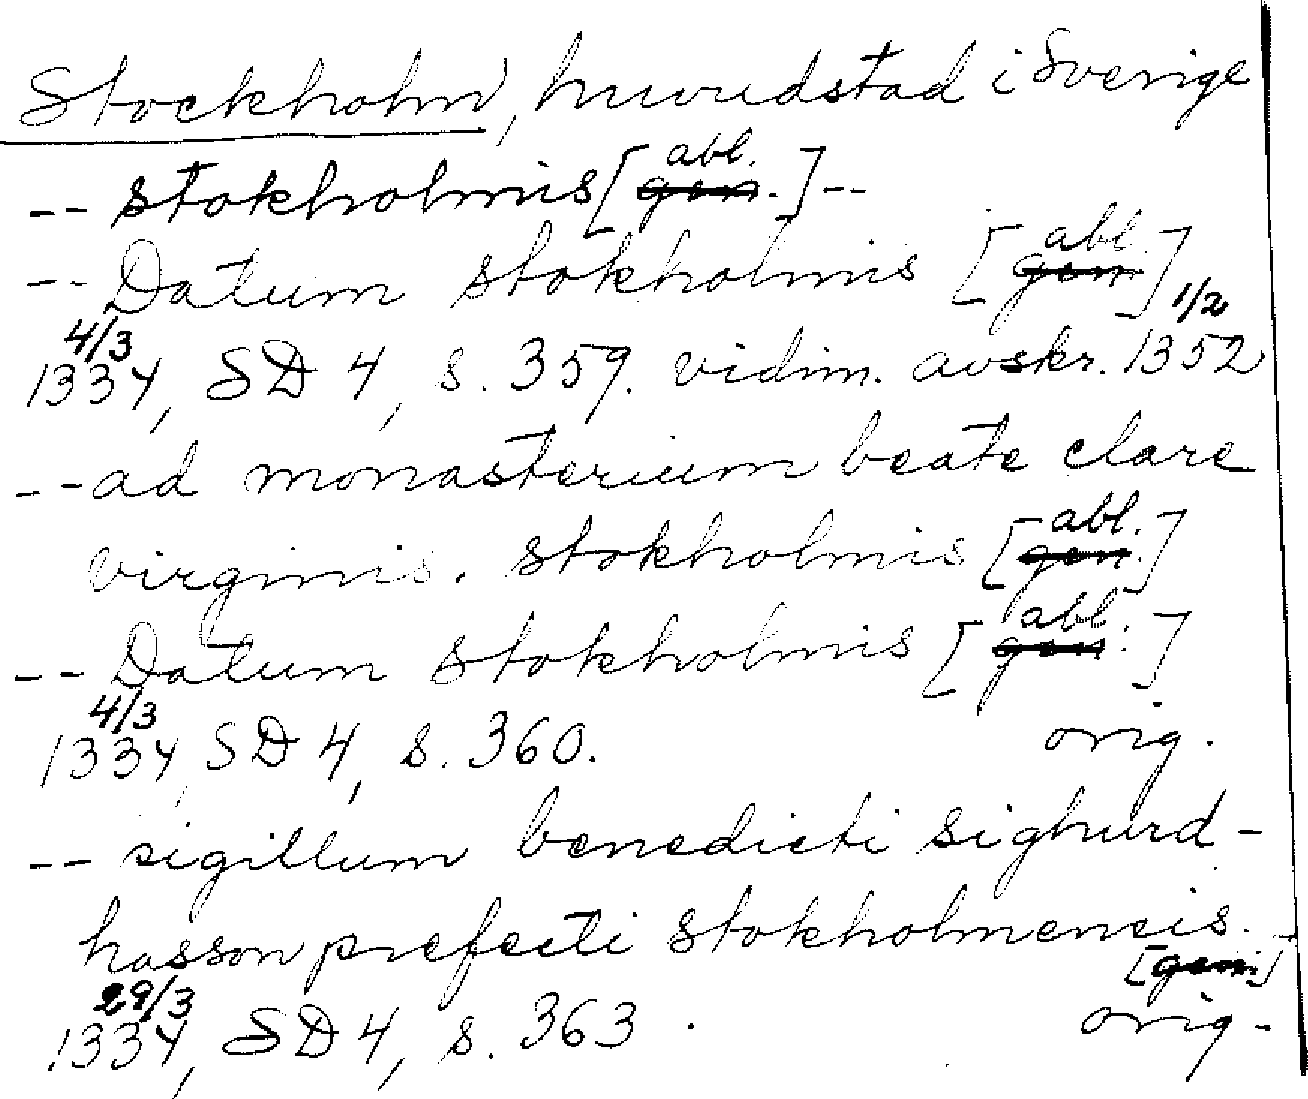 Stockholm, huvudstad i Sverige
-- stokholmis [gen. abl.] --
-- Datum stokholmis [gen abl.]
4/3 1334, SD 4, s. 359. vidim. avskr. 1/2 1352
-- ad monasterium beate clare
virginis. stokholmis [gen. abl.]
-- Datum stokholmis [gen. abl.]
4/3 1334, SD 4, s. 360. orig.
-- sigillum benedicti sighurd-
hasson prefecti stokholmensis.
[gen.]
29/3 1334, SD 4, s. 363. orig-